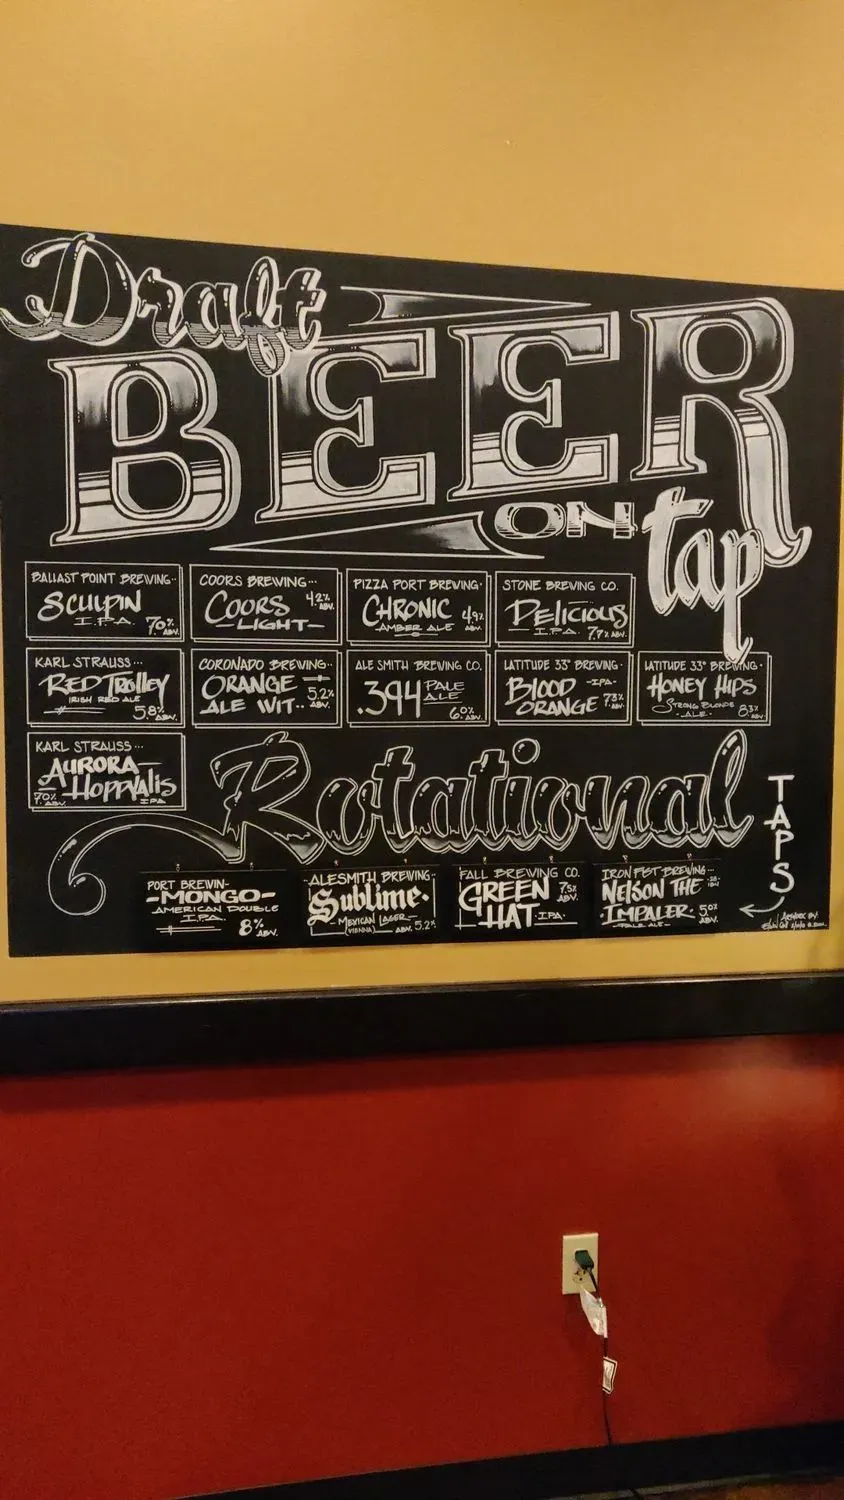 Draft
BEER
ON tap
BALLAST POINT BREWING..
SCULPIN
I.P.A. 7.0% ABV.
COORS BREWING...
COORS 4.2% ABV.
-LIGHT-
PIZZA PORT BREWING.
CHRONIC 4.9% ABV.
AMBER ALE
STONE BREWING CO.
DELICIOUS
I.P.A. 7.7% ABV.
KARL STRAUSS...
RED TROLLEY
IRISH RED ALE
5.8% ABV.
CORONADO BREWING..
ORANGE
ALE WIT.. 5.2% ABV.
ALE SMITH BREWING CO.
.394 PALE ALE
6.0% ABV.
LATITUDE 33° BREWING.
BLOOD -IPA-
ORANGE 7.3% ABV.
LATITUDE 33° BREWING.
HONEY HIPS
STRONG BLONDE
-ALE- 8.3% ABV.
KARL STRAUSS...
AURORA
HOPPYALIS
7.0% ABV. IPA
Rotational
TAPS
PORT BREWIN-
-MONGO-
AMERICAN DOUBLE
I.P.A.
8% ABV.
ALESMITH BREWING
Sublime.
-MEXICAN LAGER-
(VIENNA) ABV. 5.2%
FALL BREWING CO.
GREEN 7.5% ABV.
HAT -IPA-
IRON FIST BREWING
NELSON THE
IMPALER. 5.0% ABV.
-PALE ALE-
ARTWORK BY: